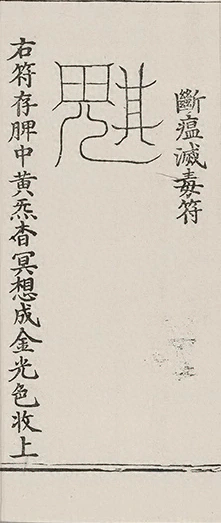 斷瘟滅毒符
右符存脾中黄炁杳冥想成金光色收上